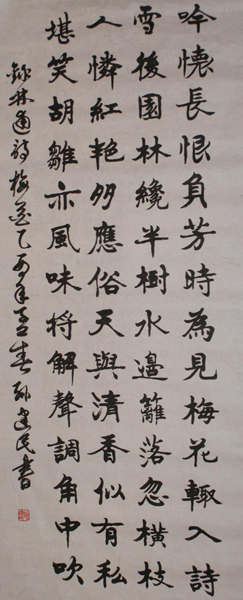 吟懷長恨負芳時為見梅花輒入詩
雪後園林纔半樹水邊籬落忽橫枝
人憐紅艳多應俗天與清香似有私
堪笑胡雛亦風味将解聲調角中吹
錄林逋詩梅乙年春建民書